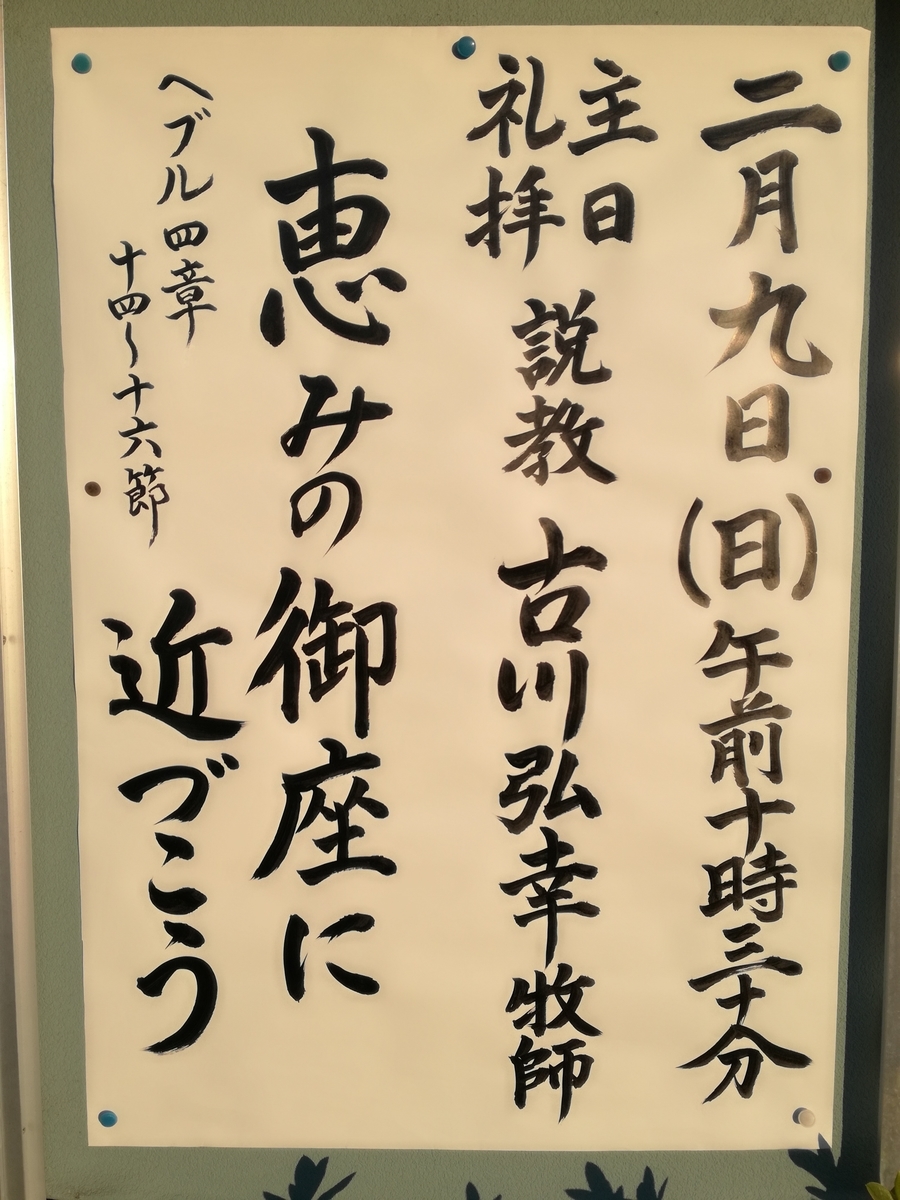 二月九日(日)午前十時三十分
主日
礼拝
説教 古川弘幸牧師
恵みの御座に
近づこう
ヘブル四章
十四～十六節